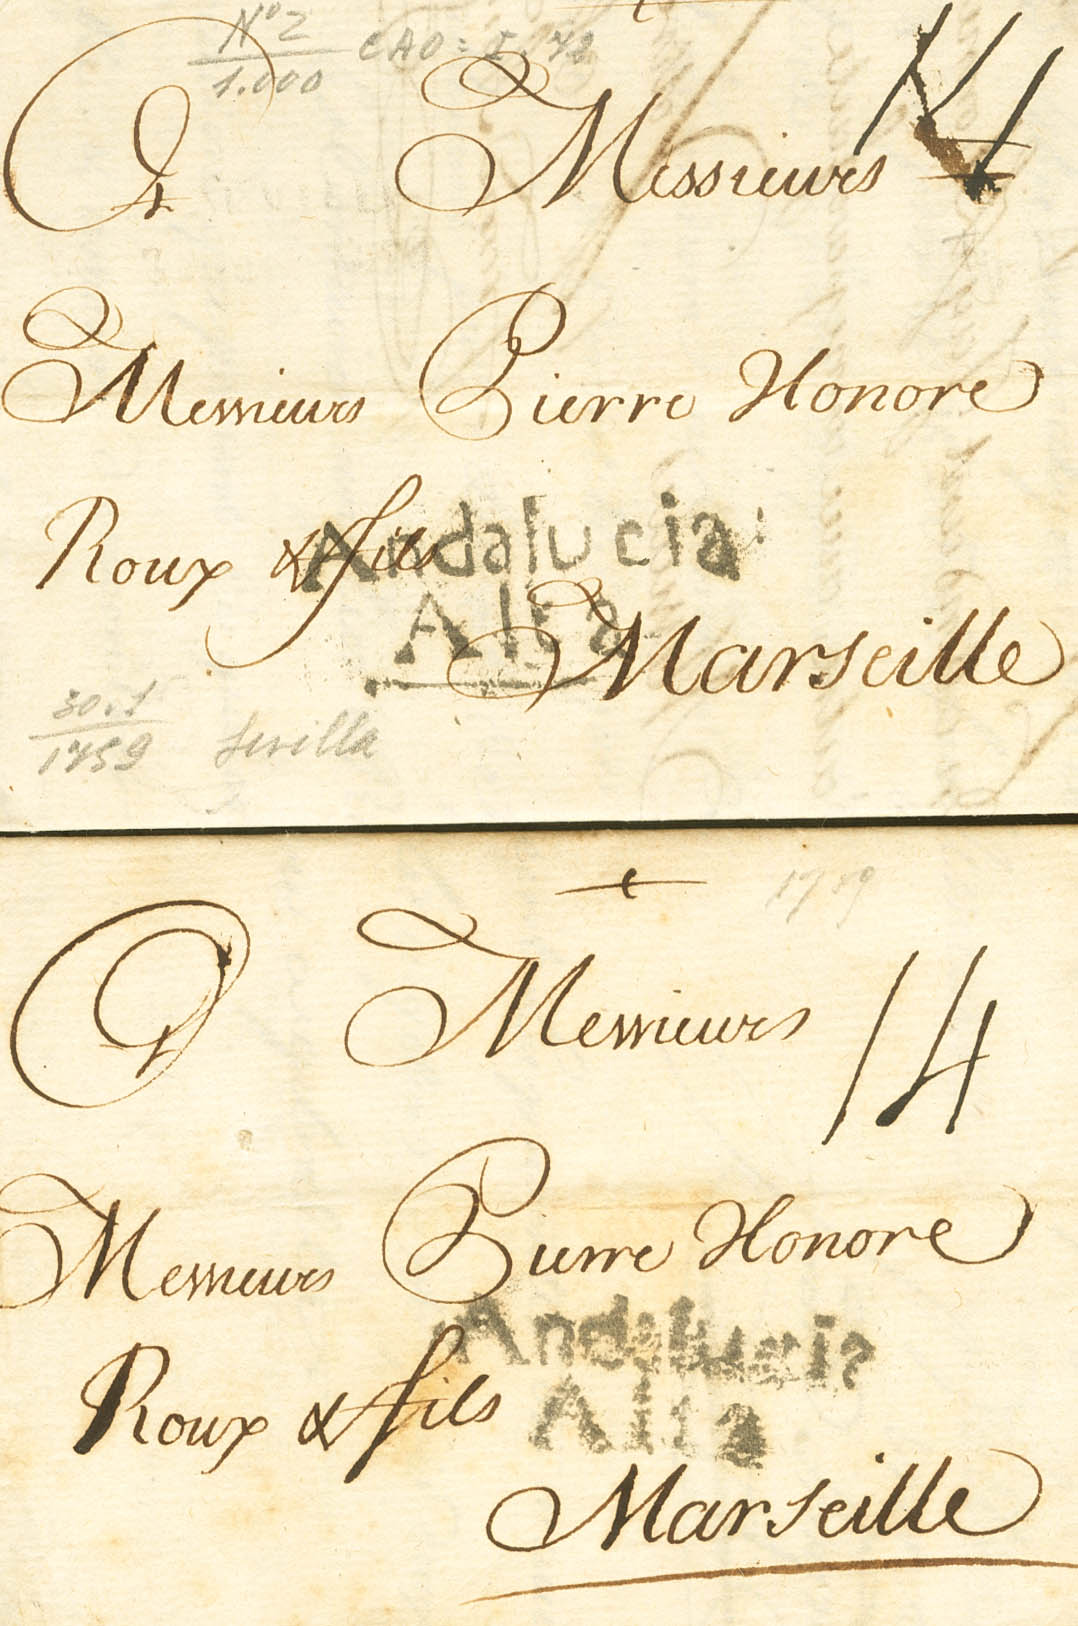 Nº 2
1.000
A Messieurs 14
Messieurs Pierre Honore
Roux & fils
Andalucia
Alta
Marseille
30.1
1759 Sevilla
1759
A Messieurs 14
Messieurs Pierre Honore
Andalucia
Roux & fils
Alta
Marseille